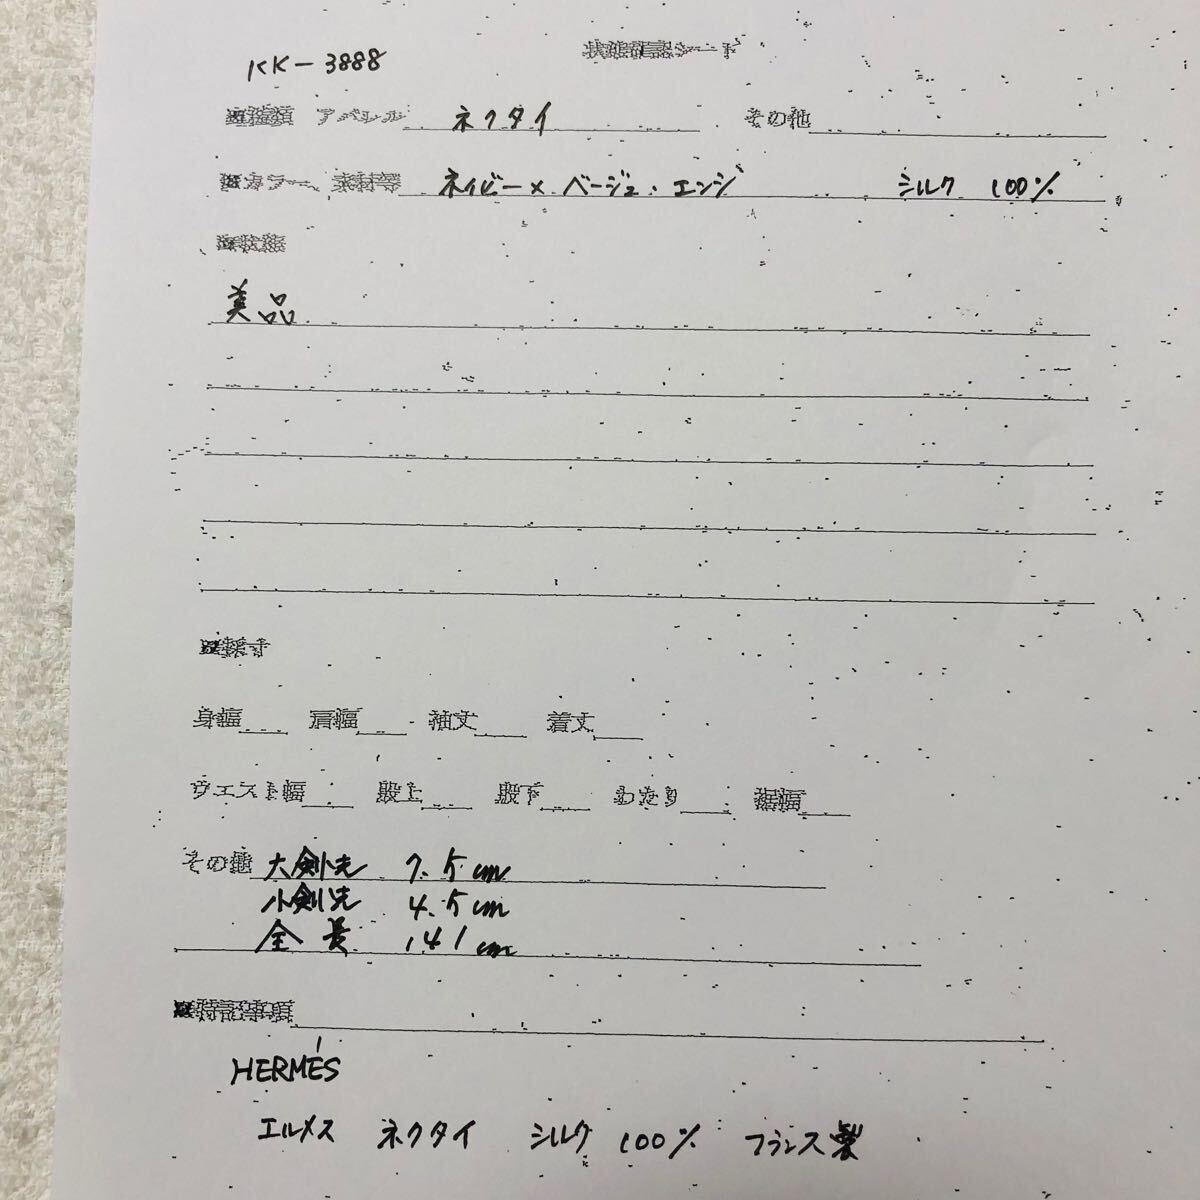 KK-3888
状態確認シート
■種類 アパレル ネクタイ その他
■カラー、素材等 ネイビー×ベージュ・エンジ シルク 100%
■状態
美品
■採寸
身幅 肩幅 袖丈 着丈
ウエスト幅 股上 股下 わたり 裾幅
その他 大剣先 7.5cm
小剣先 4.5cm
全長 141cm
■特記事項
HERMÉS
エルメス ネクタイ シルク 100% フランス製